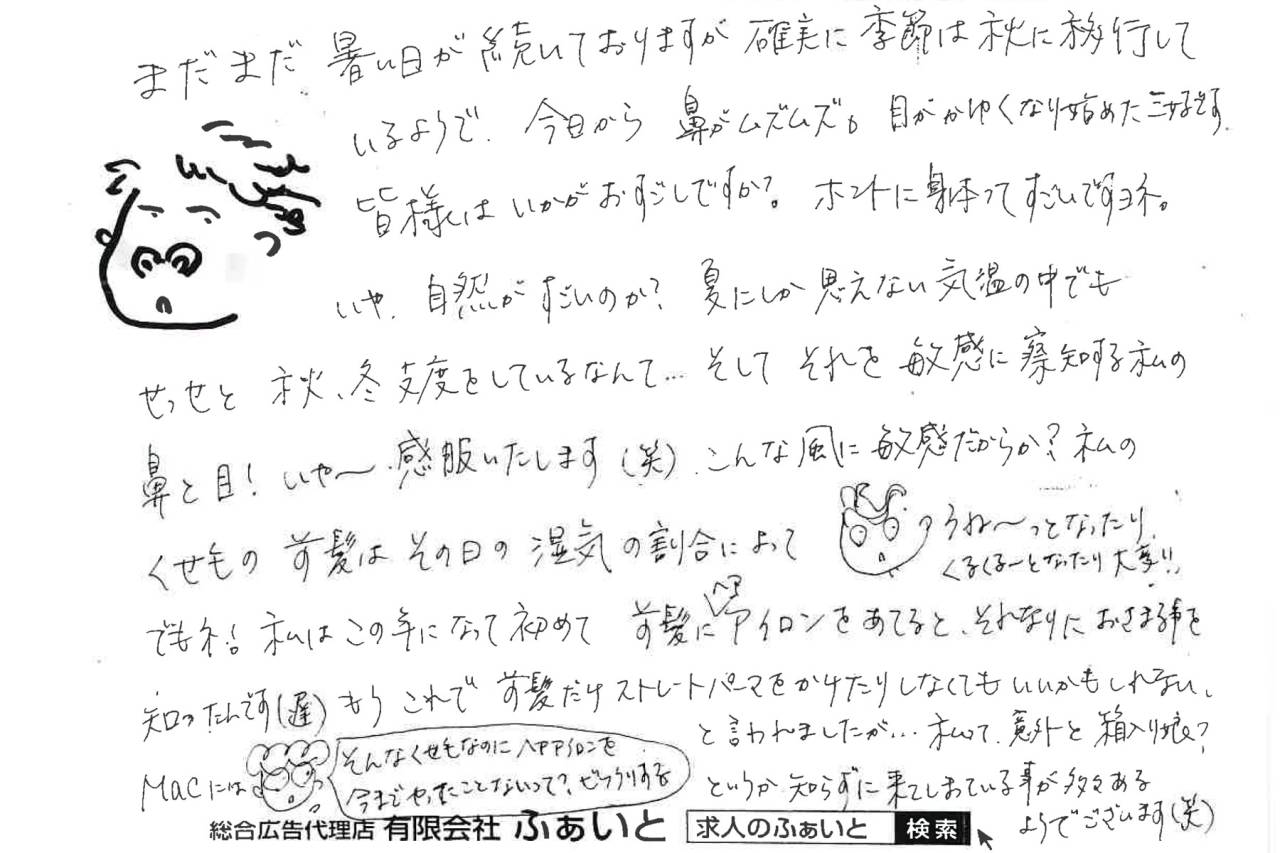 まだまだ 暑い日が 続いておりますが 確実に 季節は 秋に移行して
いるようで、今日から 鼻がムズムズ。目がかゆくなり始めた三好です。
皆様は いかがおすごしですか? ホントに身体ってすごいですヨネ。
いや、自然がすごいのか? 夏にしか思えない気温の中でも
せっせと 秋、冬支度をしているなんて… そして それを 敏感に察知する私の
鼻と目! いや〜感服いたします(笑) こんな風に敏感だからか? 私の
くせ毛の 前髪は その日の 湿気の割合によって
うね〜っとなったり、
くるくるーとなったり大変!!
でもネ! 私は この年になって初めて 前髪にヘアアイロンをあてると、それなりにおさまる事を
知ったんです(遅) もう これで 前髪だけ ストレートパーマをかけたりしなくてもいいかもしれない、
MACには
そんなくせ毛なのに ヘアアイロンを
今までやったことないって? びっくりする
と言われましたが… 私って、意外と 箱入り娘?
というか 知らずに来てしまっている事が多々ある
ようでございます(笑)
総合広告代理店 有限会社 ふぁいと 求人のふぁいと 検索